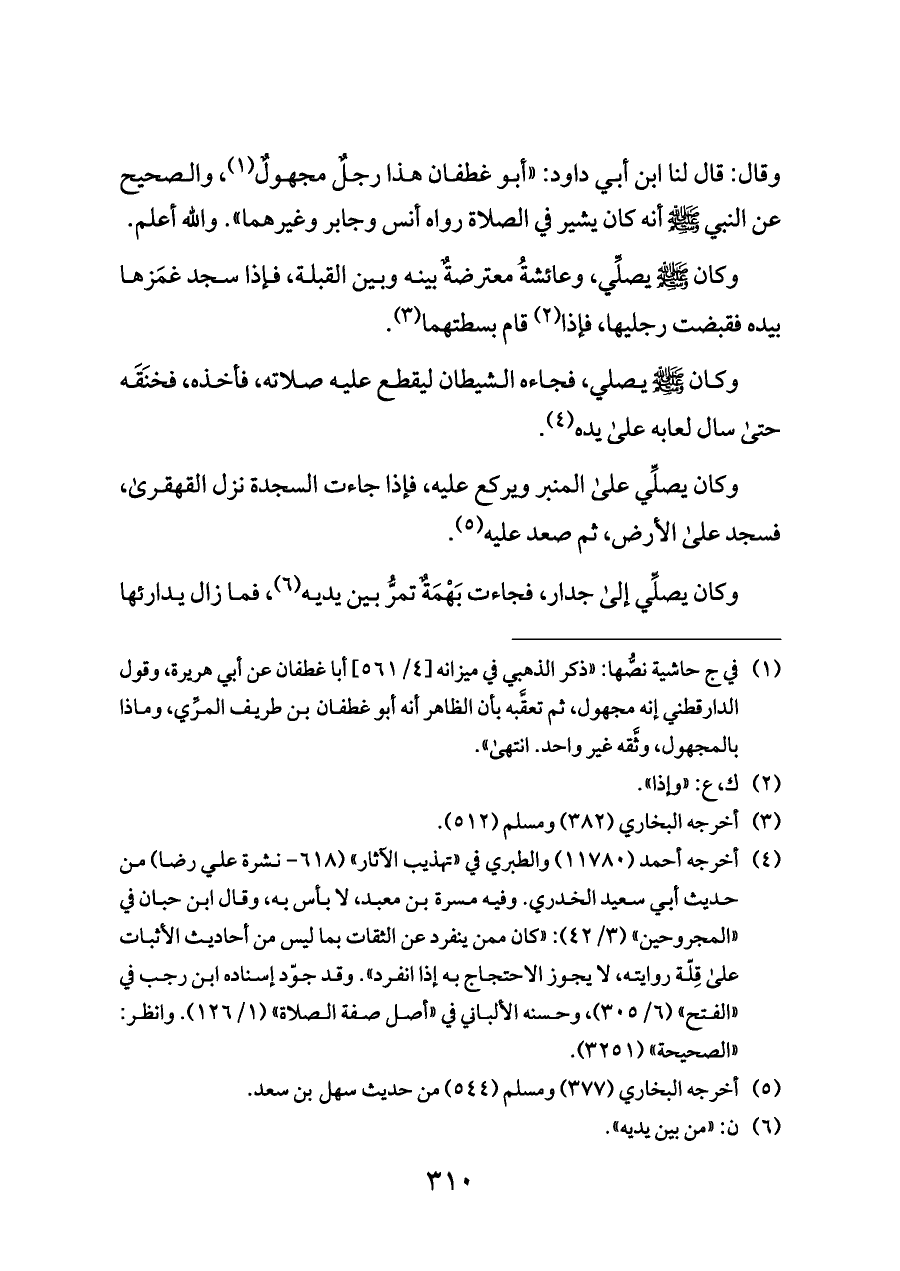 وقال: قال لنا ابن أبي داود: «أبو غطفان هذا رجلٌ مجهولٌ(١)، والصحيح
عن النبي ﷺ أنه كان يشير في الصلاة رواه أنس وجابر وغيرهما». والله أعلم.
وكان ﷺ يصلِّي، وعائشةُ معترضةٌ بينه وبين القبلة، فإذا سجد غمَزها
بيده فقبضت رجليها، فإذا(٢) قام بسطتهما(٣).
وكان ﷺ يصلي، فجاءه الشيطان ليقطع عليه صلاته، فأخذه، فخنَقَه
حتىٰ سال لعابه علىٰ يده(٤).
وكان يصلِّي علىٰ المنبر ويركع عليه، فإذا جاءت السجدة نزل القهقرىٰ،
فسجد علىٰ الأرض، ثم صعد عليه(٥).
وكان يصلِّي إلىٰ جدار، فجاءت بَهْمَةٌ تمرُّ بين يديه(٦)، فما زال يدارئها
(١) في ج حاشية نصُّها: «ذكر الذهبي في ميزانه [٤/ ٥٦١] أبا غطفان عن أبي هريرة، وقول
الدارقطني إنه مجهول، ثم تعقَّبه بأن الظاهر أنه أبو غطفان بن طريف المرِّي، وماذا
بالمجهول، وثَّقه غير واحد. انتهىٰ».
(٢) ك، ع: «وإذا».
(٣) أخرجه البخاري (٣٨٢) ومسلم (٥١٢).
(٤) أخرجه أحمد (١١٧٨٠) والطبري في «تهذيب الآثار» (٦١٨- نشرة علي رضا) من
حديث أبي سعيد الخدري. وفيه مسرة بن معبد، لا بأس به، وقال ابن حبان في
«المجروحين» (٣/ ٤٢): «كان ممن ينفرد عن الثقات بما ليس من أحاديث الأثبات
علىٰ قِلّة روايته، لا يجوز الاحتجاج به إذا انفرد». وقد جوّد إسناده ابن رجب في
«الفتح» (٦/ ٣٠٥)، وحسنه الألباني في «أصل صفة الصلاة» (١/ ١٢٦). وانظر:
«الصحيحة» (٣٢٥١).
(٥) أخرجه البخاري (٣٧٧) ومسلم (٥٤٤) من حديث سهل بن سعد.
(٦) ن: «من بين يديه».
٣١٠